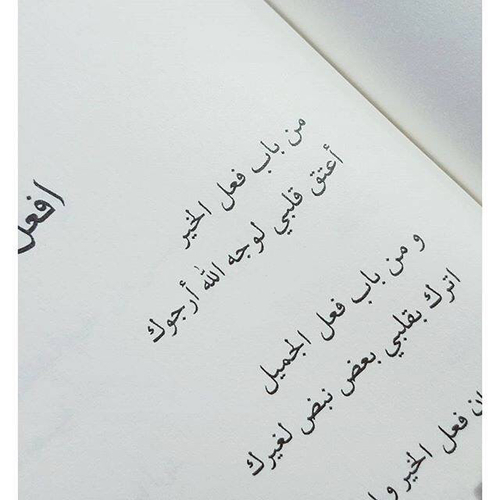 من باب فعل الخير
أعتق قلبي لوجه الله أرجوك
و من باب فعل الجميل
اترك بقلبي بعض نبض لغيرك
فعل الخير
افعل